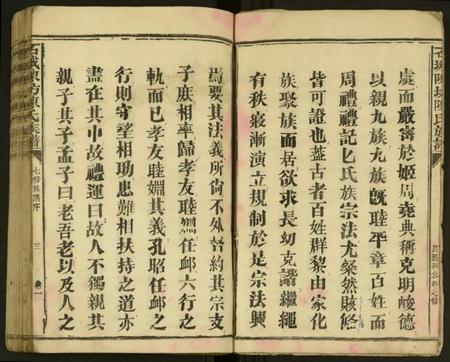 虞而嚴密於姬周堯典稱克明峻德
以親九族九族旣睦平章百姓而
周禮禮記匕氏族宗法尤粲然賅俻
皆可證也葢古者百姓群黎由家化
族聚族而居欲求長幼克諧繼繩
有秩寖漸演立規制於是宗法興
焉要其法義所尚不外督約其宗支
子庻相率歸孝友睦婣任䘏六行之
軌而已孝友睦婣其義孔昭任䘏之
行則守望相助患難相扶持之道亦
盡在其中故禮運曰故人不獨親其
親子其子孟子曰老吾老以及人之
七修族譜序
三
卷一